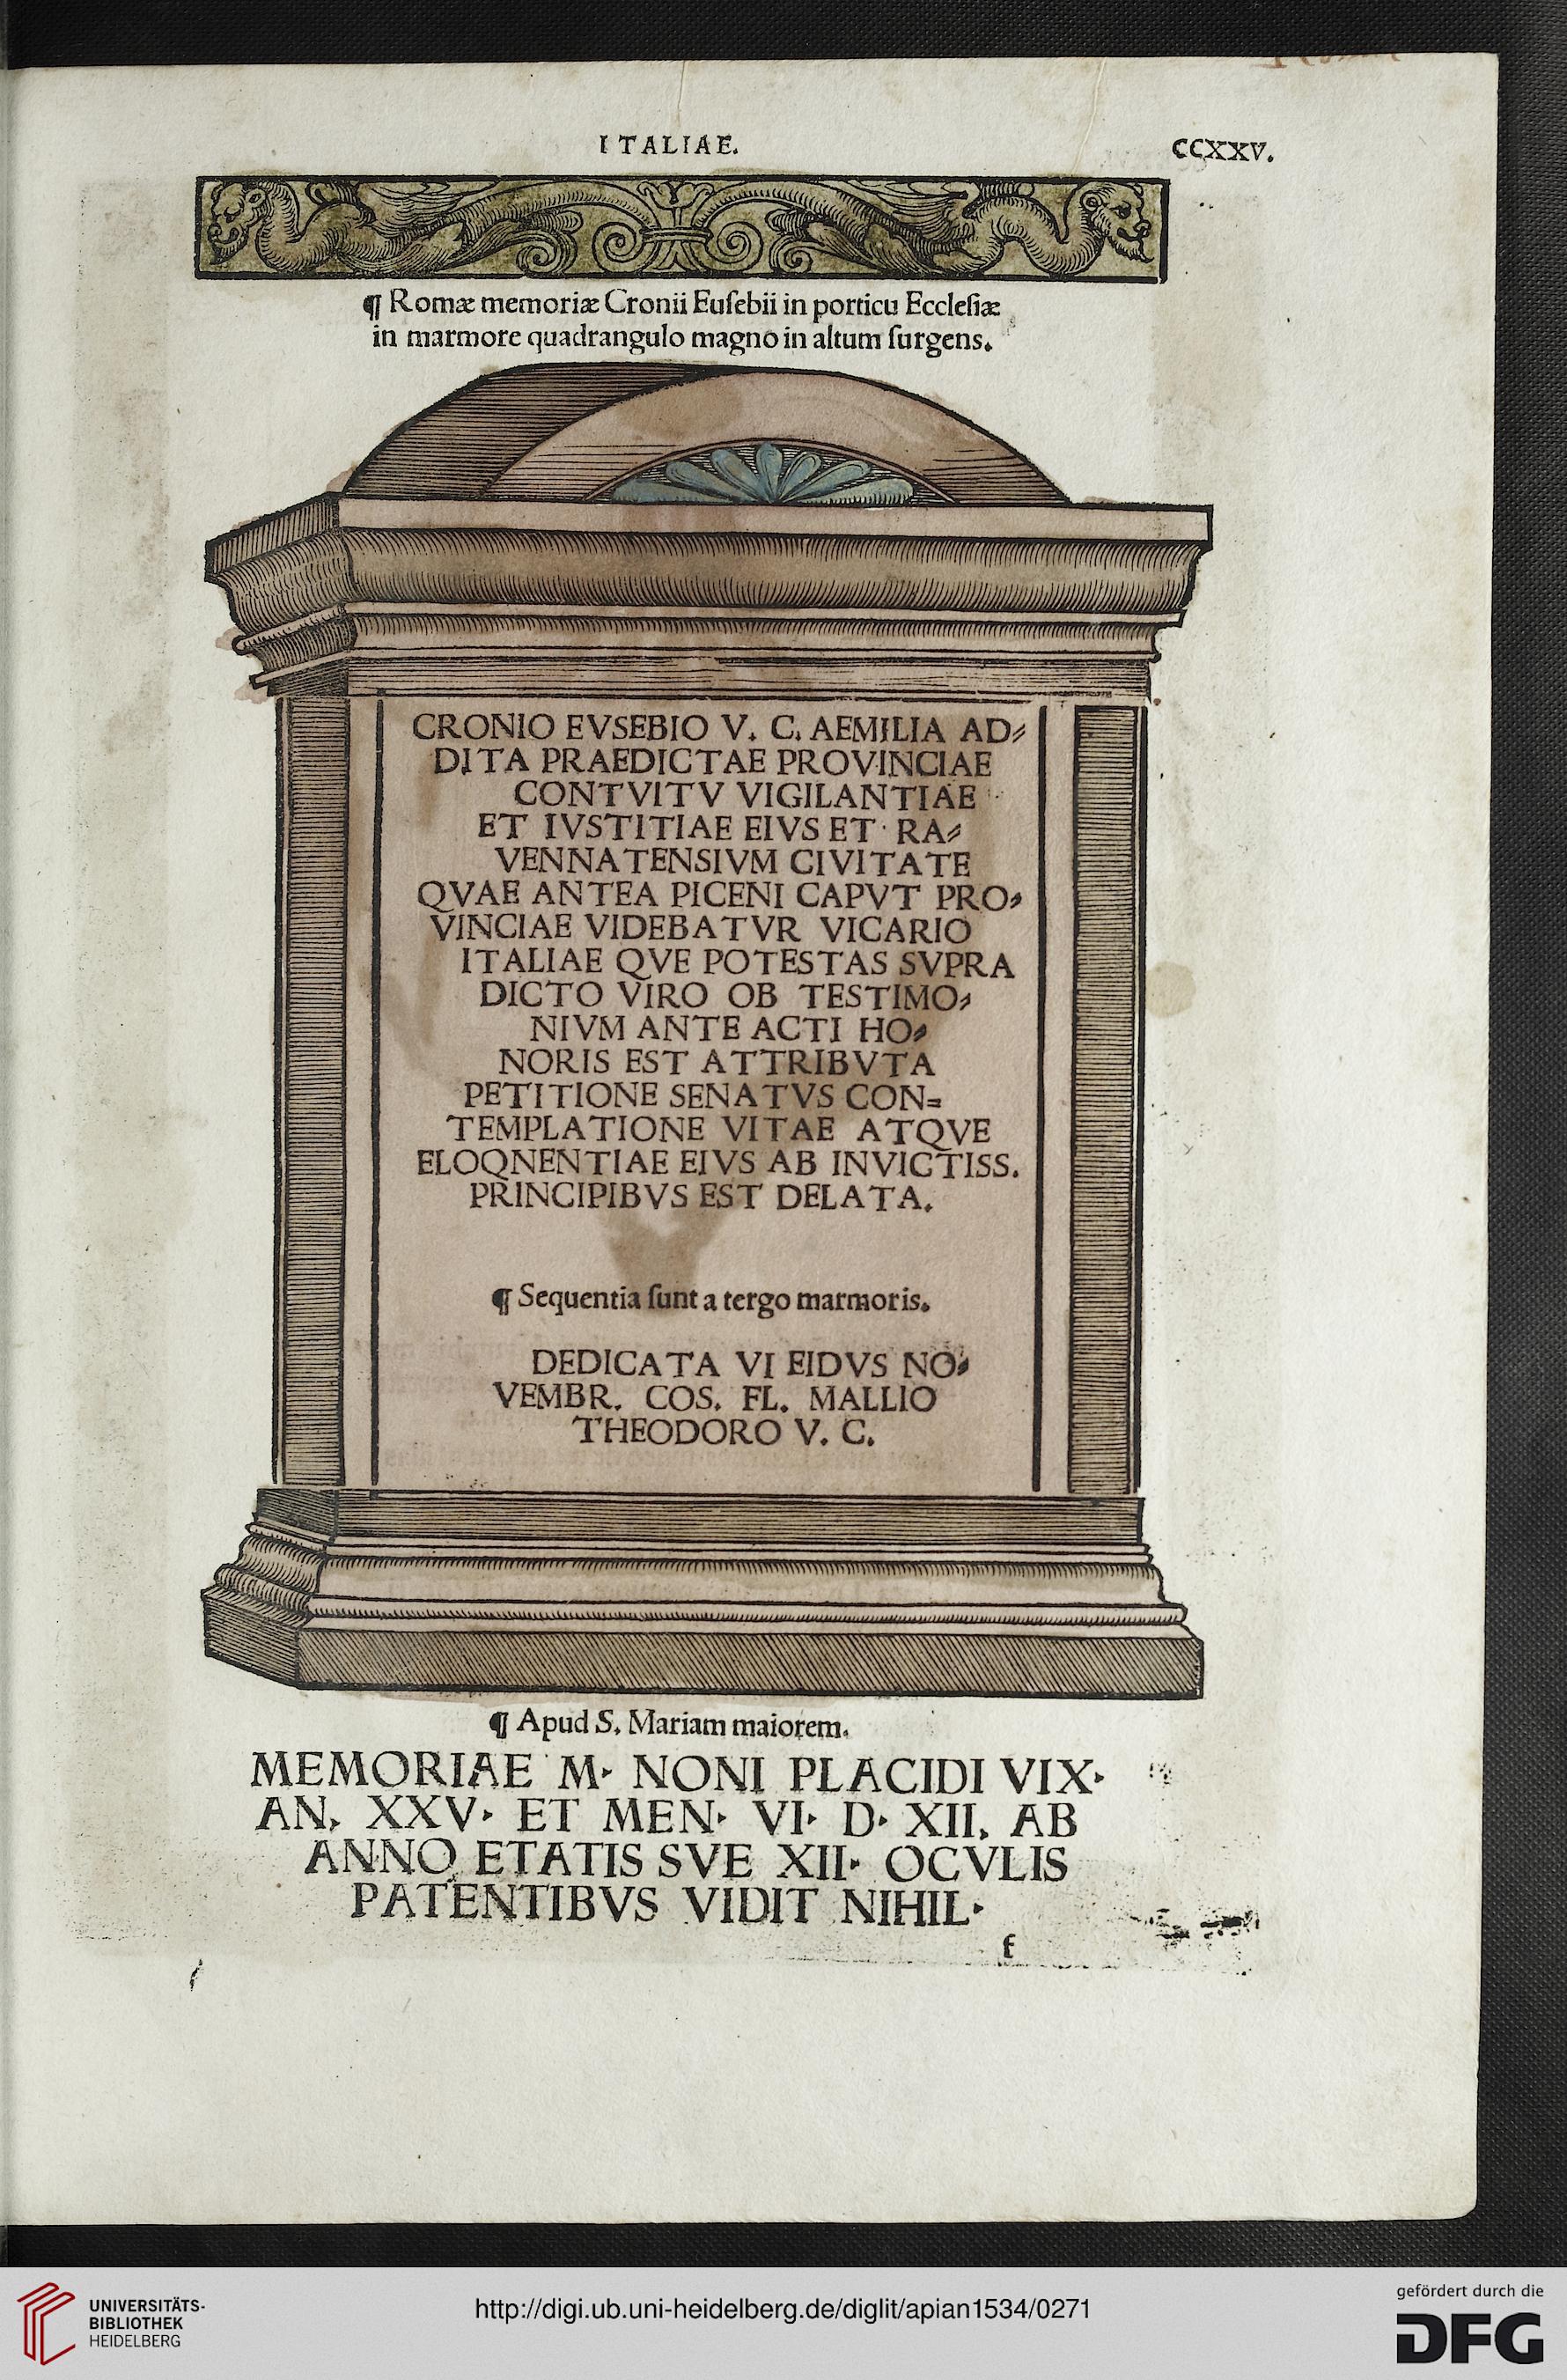 ITALIAE.
CCXXV.
¶ Romæ memoriæ Cronii Euſebii in porticu Eccleſiæ
in marmore quadrangulo magno in altum ſurgens.
CRONIO EVSEBIO V. C. AEMILIA AD⸗
DITA PRAEDICTAE PROVINCIAE
CONTVITV VIGILANTIAE
ET IVSTITIAE EIVS ET RA⸗
VENNATENSIVM CIVITATE
QVAE ANTEA PICENI CAPVT PRO⸗
VINCIAE VIDEBATVR VICARIO
ITALIAE QVE POTESTAS SVPRA
DICTO VIRO OB TESTIMO⸗
NIVM ANTE ACTI HO⸗
NORIS EST ATTRIBVTA
PETITIONE SENATVS CON⸗
TEMPLATIONE VITAE ATQVE
ELOQNENTIAE EIVS AB INVICTISS.
PRINCIPIBVS EST DELATA.
¶ Sequentia ſunt a tergo marmoris.
DEDICATA VI EIDVS NO⸗
VEMBR. COS. FL. MALLIO
THEODORO V. C.
¶ Apud S. Mariam maiorem.
MEMORIAE M· NONI PLACIDI VIX·
AN, XXV· ET MEN· VI· D· XII. AB
ANNO ETATIS SVE XII· OCVLIS
PATENTIBVS VIDIT NIHIL·
f
UNIVERSITÄTS-
BIBLIOTHEK
HEIDELBERG
http://digi.ub.uni-heidelberg.de/diglit/apian1534/0271
gefördert durch die
DFG